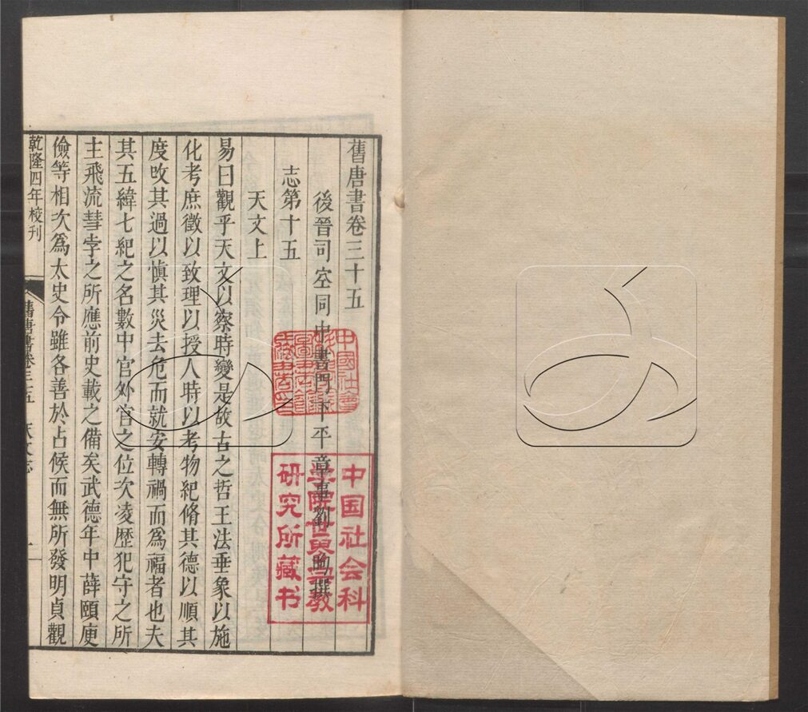 舊唐書卷三十五
後晉司空同中書門下平章事劉昫撰
志第十五
天文上
易曰觀乎天文以察時變是故古之哲王法垂象以施
化考庶徵以致理以授人時以考物紀脩其德以順其
度改其過以慎其災去危而就安轉禍而爲福者也夫
其五緯七紀之名數中官外官之位次凌歷犯守之所
主飛流彗孛之所應前史載之備矣武德年中薛頤庾
儉等相次爲太史令雖各善於占候而無所發明貞觀
乾隆四年校刊
舊唐書卷三十五 天文志 一
中国社会科
学院世界宗教
研究所藏书